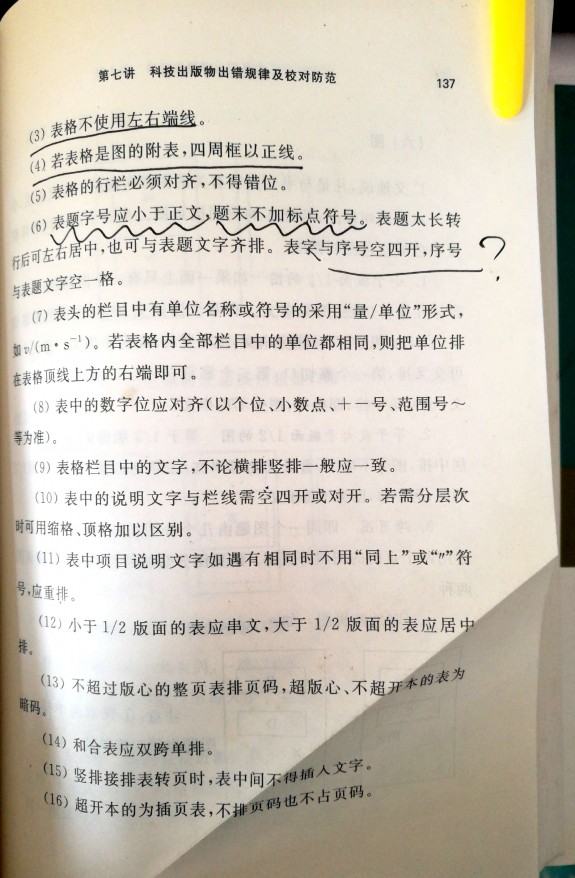 第七讲 科技出版物出错规律及校对防范
137
(3) 表格不使用左右端线。
(4) 若表格是图的附表,四周框以正线。
(5) 表格的行栏必须对齐,不得错位。
(6) 表题字号应小于正文,题末不加标点符号。表题太长转
行后可左右居中,也可与表题文字齐排。表字与序号空四开,序号
与表题文字空一格。
?
(7) 表头的栏目中有单位名称或符号的采用“量/单位”形式,
如 v/(m·s⁻¹)。若表格内全部栏目中的单位都相同,则把单位排
在表格顶线上方的右端即可。
(8) 表中的数字位应对齐(以个位、小数点、+-号、范围号~
等为准)。
(9) 表格栏目中的文字,不论横排竖排一般应一致。
(10) 表中的说明文字与栏线需空四开或对开。若需分层次
时可用缩格、顶格加以区别。
(11) 表中项目说明文字如遇有相同时不用“同上”或“〃”符
号,应重排。
(12) 小于 1/2 版面的表应串文,大于 1/2 版面的表应居中
排。
(13) 不超过版心的整页表排页码,超版心、不超开本的表为
暗码。
(14) 和合表应双跨单排。
(15) 竖排接排表转页时,表中间不得插入文字。
(16) 超开本的为插页表,不排页码也不占页码。